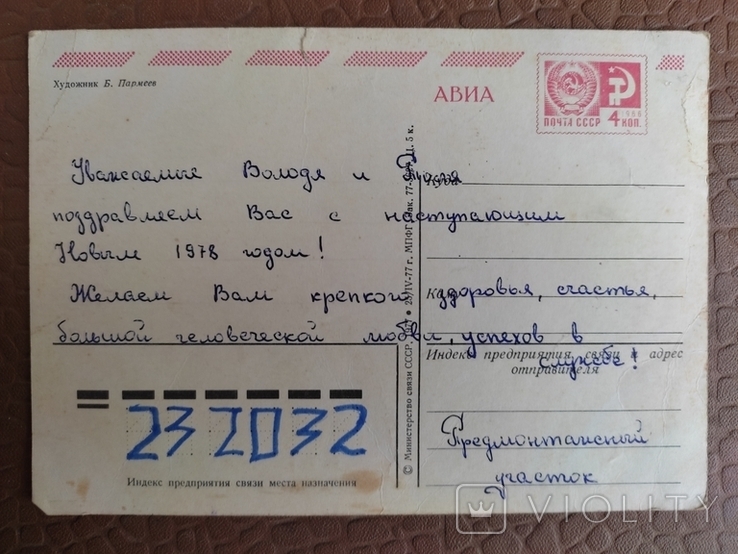 Художник Б. Пармеев
АВИА
ПОЧТА СССР
4 КОП.
1966
Уважаемые Володя и
поздравляем Вас с наступающим
Новым 1978 годом!
Желаем Вам крепкого здоровья, счастья,
большой человеческой любви, успехов в
службе!
Куда
Индекс предприятия связи и адрес
отправителя
Предмонтажный
участок
232032
Индекс предприятия связи места назначения
© Министерство связи СССР, 25/IV-77 г. МПФГ Зак. 77- Ц. 5 к.
VIOLITY